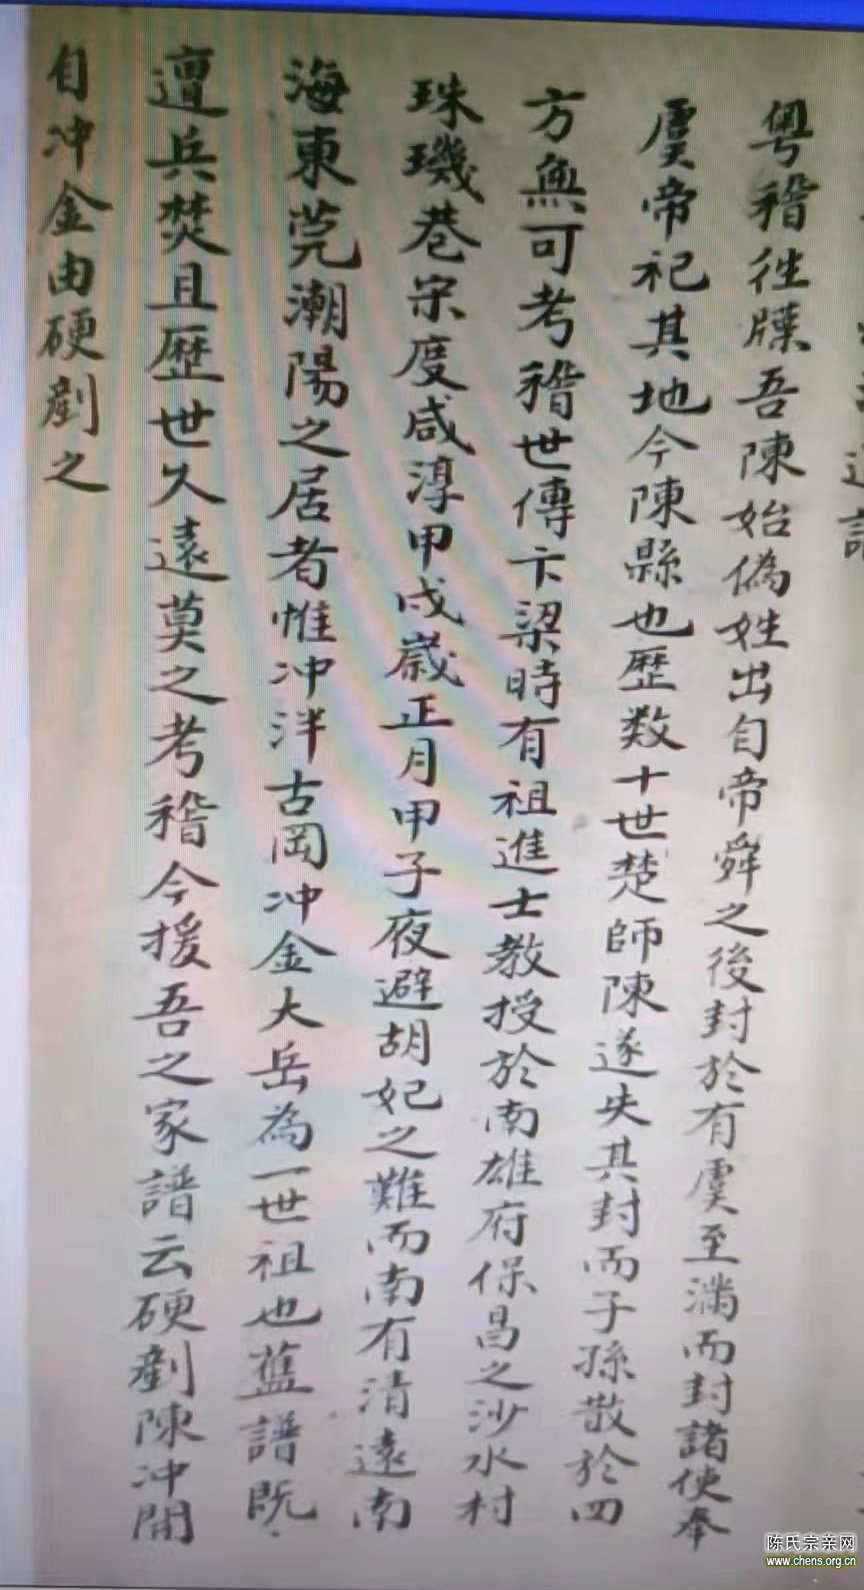 粵稽往牒吾陳始偽姓出自帝舜之後封於有虞至滿而封諸使奉
虞帝祀其地今陳縣也歷数十世楚師陳遂失其封而子孫散於四
方無可考稽世傳卞梁時有祖進士教授於南雄府保昌之沙水村
珠璣巷宋度咸淳甲戌歲正月甲子夜避胡妃之難而南有清遠南
海東莞潮陽之居者惟冲泮古岡冲金大岳為一世祖也舊譜既
遭兵焚且歷世久遠莫之考稽今援吾之家譜云硬劃陳冲開
自冲金由硬劃之
陳氏宗亲网
www.chens.org.cn